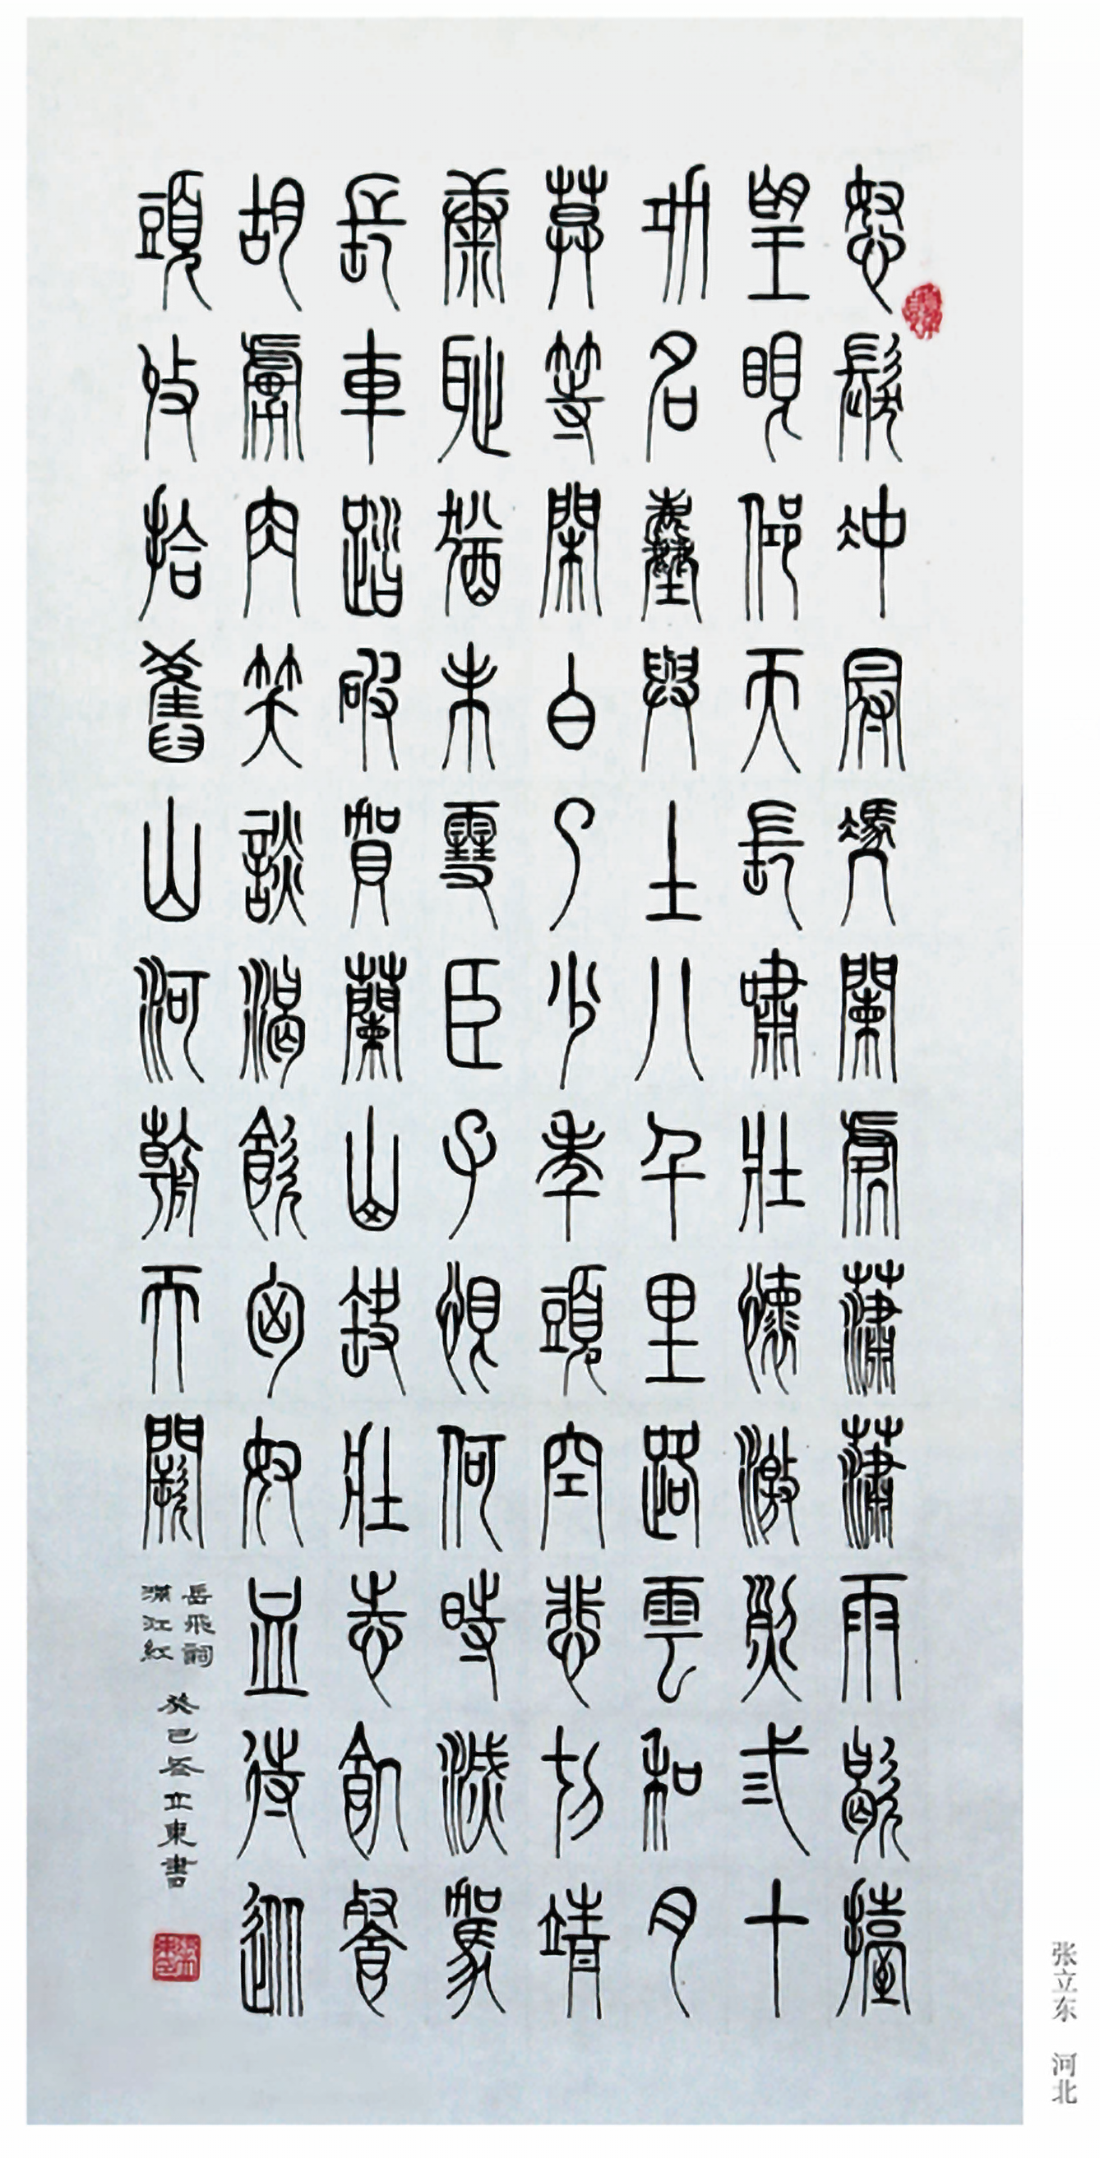 怒髮沖冠憑闌處瀟瀟雨歇擡
望眼仰天長嘯壯懷激烈弎十
功名塵與土八千里路雲和月
莫等閑白了少年頭空悲切靖
康恥猶未雪臣子恨何時滅駕
長車踏破賀蘭山缺壯志飢餐
胡虜肉笑談渴飲匈奴血待從
頭收拾舊山河朝天闕
岳飛詞
滿江紅
癸巳冬立東書
张立东 河北